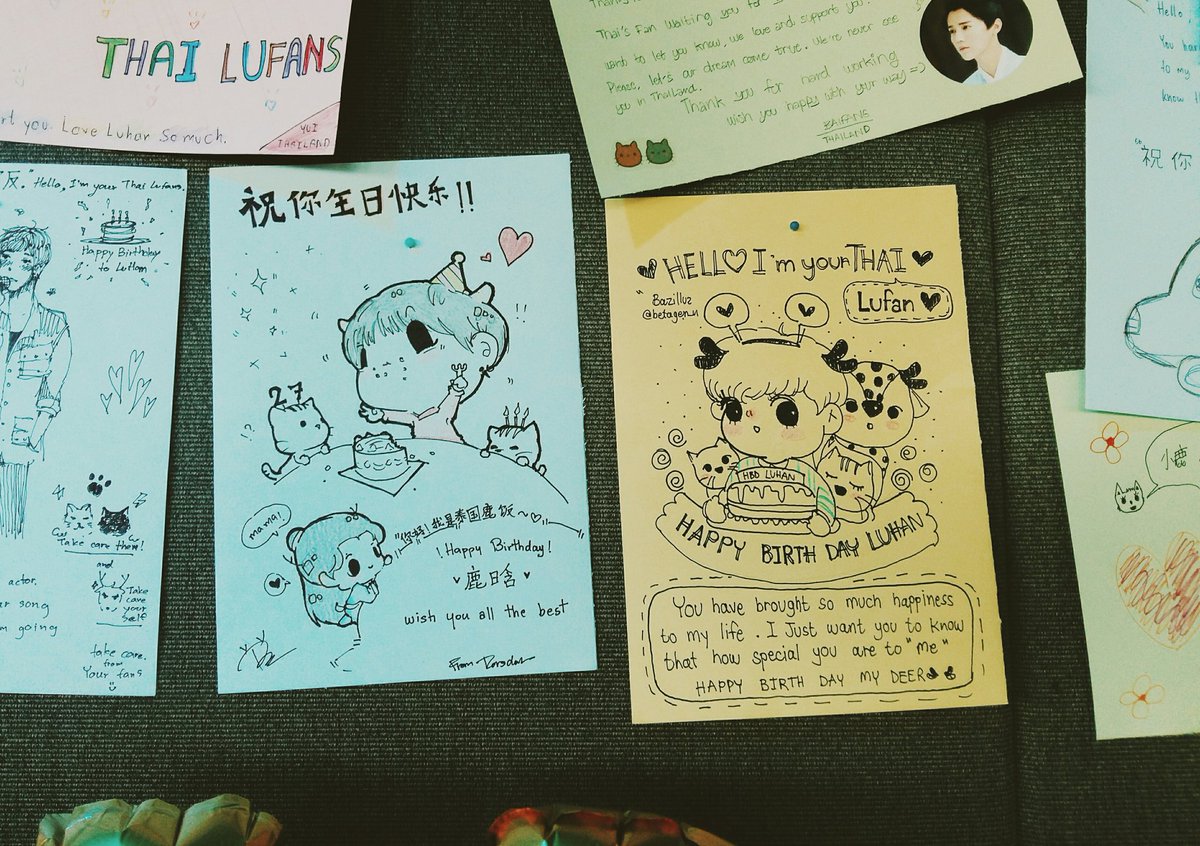 THAI LUFANS
rt you. Love Luhan So much.
YUI
THAILAND
Thai's Fan Waiting you for
want to let you know, we love and support you.
Please, let's our dream come true. We're never see
you in Thailand.
Thank you for hard working
wish you happy with your way =)
ZAIFANE
THAILAND
Hello,
You
to my
know
"祝 你
反". Hello, I'm your Thai Lufans.
Happy Birthday
to LuHan
Take care them!
and
Take
care
your
self
actor.
song
going
take care.
from
Your fans
祝你生日快乐!!
27
!?
!!
mama!
"你好!我是泰国鹿饭~♡"
Happy Birthday!
鹿日晗
wish you all the best
From
HELLO♡ I'm your THAI
Lufan ♥
Bazilluz
HBD LUHAN
HAPPY BIRTH DAY LUHAN
You have brought so much happiness
to my life. I Just want you to know
that how special you are to "me"
HAPPY BIRTH DAY MY DEER
小鹿